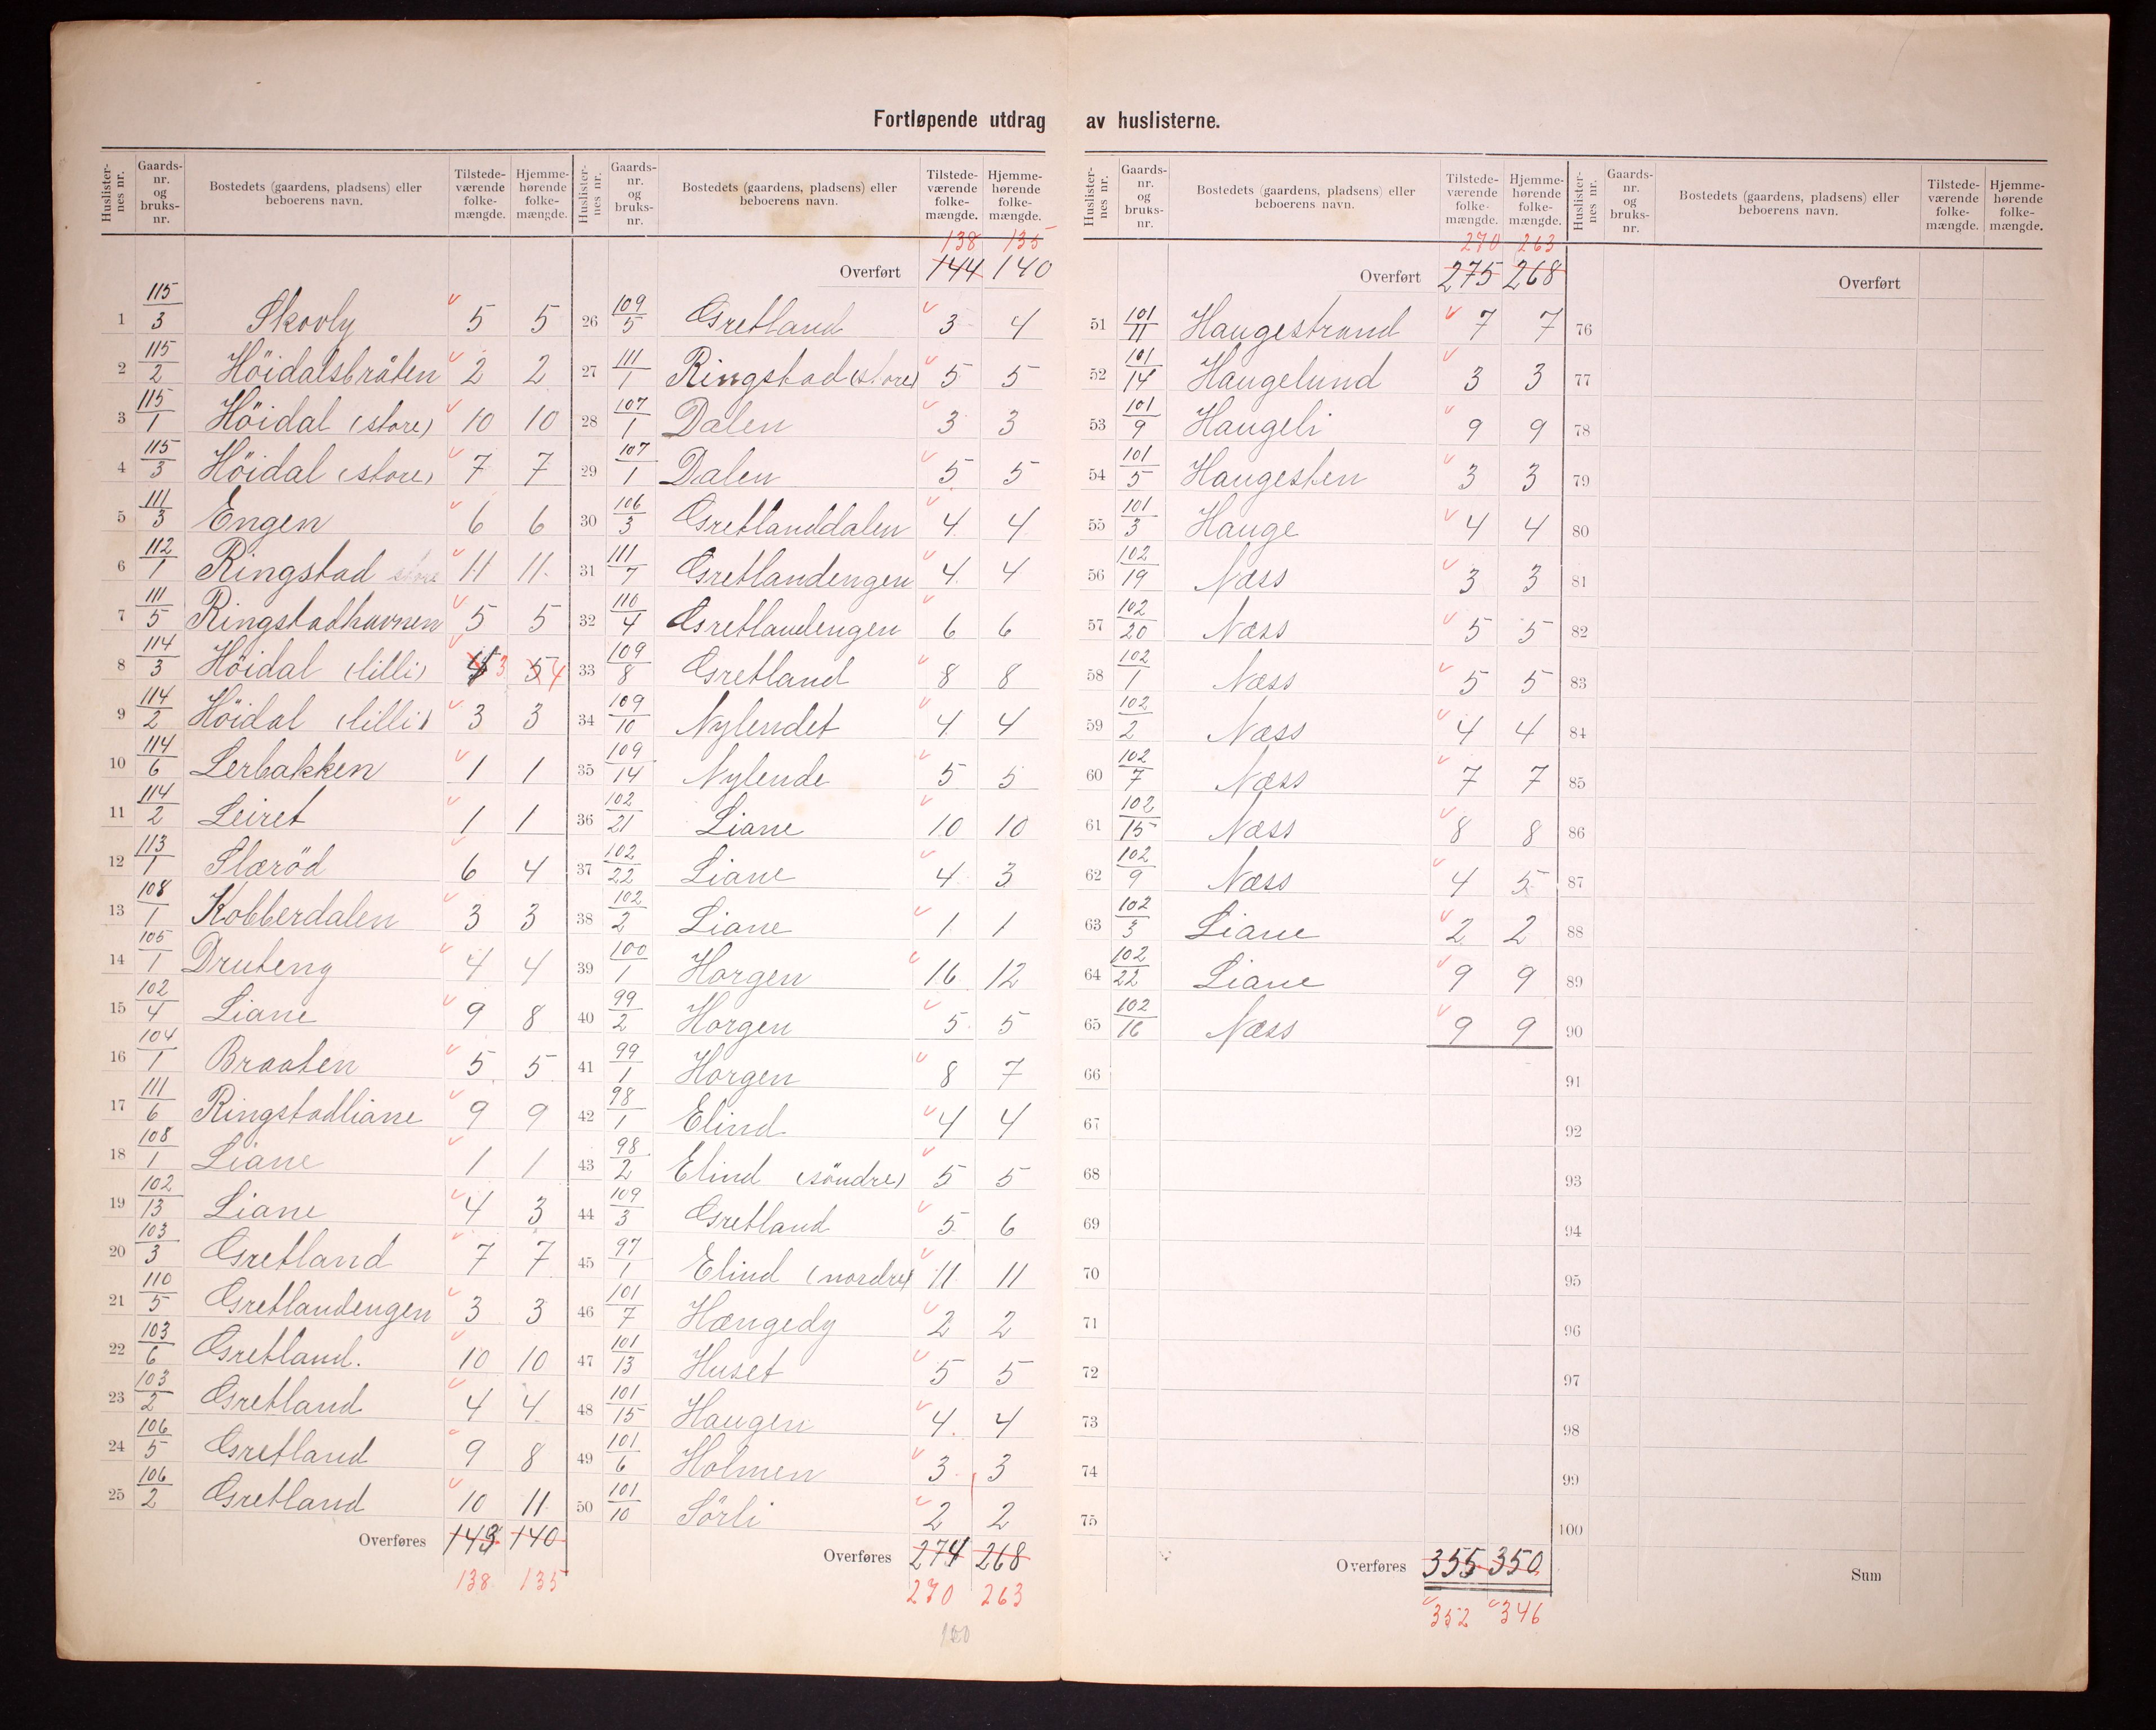 Fortløpende utdrag av huslisterne.
Huslister-nes nr. | Gaards-nr. og bruks-nr. | Bostedets (gaardens, pladsens) eller beboerens navn. | Tilstede-værende folke-mængde. | Hjemme-hørende folke-mængde.
1 115/3 Skovly 5 5
2 115/2 Höidalsbråten 2 2
3 115/1 Höidal (store) 10 10
4 115/3 Höidal (store) 7 7
5 111/3 Engen 6 6
6 112/1 Ringstad store 11 11
7 111/5 Ringstadhavnen 5 5
8 114/3 Höidal (lille) 3 5 4
9 114/2 Höidal (lille) 3 3
10 114/6 Lerbakken 1 1
11 114/2 Leiret 1 1
12 113/1 Slæröd 6 4
13 108/1 Kobberdalen 3 3
14 105/1 Druteng 4 4
15 102/4 Liane 9 8
16 104/1 Braaten 5 5
17 111/6 Ringstadliane 9 9
18 108/1 Liane 1 1
19 102/13 Liane 4 3
20 103/3 Gretland 7 7
21 110/5 Gretlandengen 3 3
22 103/6 Gretland. 10 10
23 103/2 Gretland 4 4
24 106/5 Gretland 9 8
25 106/2 Gretland 10 11
Overføres 143 140
138 135
Huslister-nes nr. | Gaards-nr. og bruks-nr. | Bostedets (gaardens, pladsens) eller beboerens navn. | Tilstede-værende folke-mængde. | Hjemme-hørende folke-mængde.
138 135
Overført 144 140
26 109/5 Gretland 3 4
27 111/1 Ringstad (store) 5 5
28 107/1 Dalen 3 3
29 107/1 Dalen 5 5
30 106/3 Gretlanddalen 4 4
31 111/7 Gretlandengen 4 4
32 110/4 Gretlandengen 6 6
33 109/8 Gretland 8 8
34 109/10 Nylendet 4 4
35 109/14 Nylende 5 5
36 102/21 Liane 10 10
37 102/22 Liane 4 3
38 102/2 Liane 1 1
39 100/1 Horgen 16 12
40 99/2 Horgen 5 5
41 99/1 Horgen 8 7
42 98/1 Elind 4 4
43 98/2 Elind (söndre) 5 5
44 109/3 Gretland 5 6
45 97/1 Elind (nordre) 11 11
46 101/7 Hængedy 2 2
47 101/13 Huset 5 5
48 101/15 Haugen 4 4
49 101/6 Holmen 3 3
50 101/10 Sörli 2 2
Overføres 274 268
270 263
Huslister-nes nr. | Gaards-nr. og bruks-nr. | Bostedets (gaardens, pladsens) eller beboerens navn. | Tilstede-værende folke-mængde. | Hjemme-hørende folke-mængde.
270 263
Overført 275 268
51 101/11 Haugestrand 7 7
52 101/14 Haugelund 3 3
53 101/9 Haugeli 9 9
54 101/5 Haugesten 3 3
55 101/3 Hauge 4 4
56 102/19 Næss 3 3
57 102/20 Næss 5 5
58 102/1 Næss 5 5
59 102/2 Næss 4 4
60 102/7 Næss 7 7
61 102/15 Næss 8 8
62 102/9 Næss 4 5
63 102/3 Liane 2 2
64 102/22 Liane 9 9
65 102/16 Næss 9 9
66
67
68
69
70
71
72
73
74
75
Overføres 355 350
352 346
Huslister-nes nr. | Gaards-nr. og bruks-nr. | Bostedets (gaardens, pladsens) eller beboerens navn. | Tilstede-værende folke-mængde. | Hjemme-hørende folke-mængde.
Overført
76
77
78
79
80
81
82
83
84
85
86
87
88
89
90
91
92
93
94
95
96
97
98
99
100
Sum